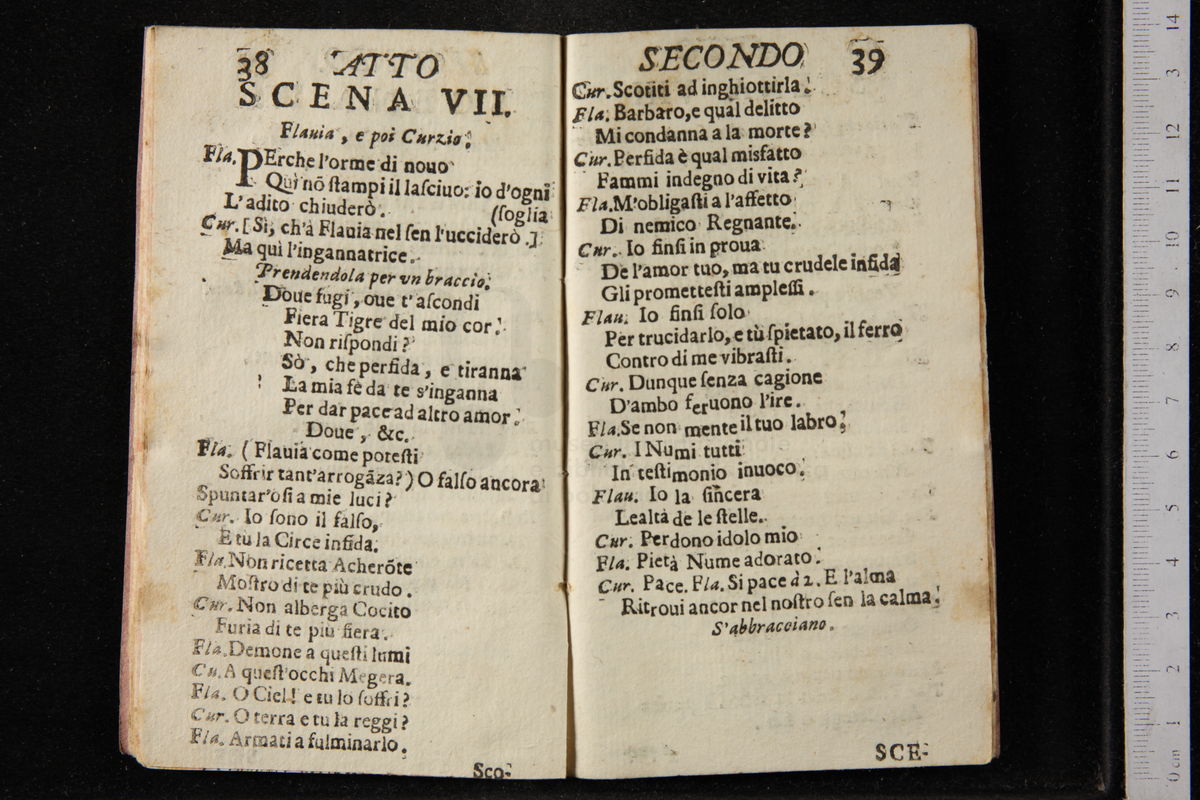 38 ATTO
SCENA VII.
Flauia, e poi Curzio.
Fla. PErche l'orme di nouo
Quì nõ ſtampi il laſciuo: io d'ogni
L'adito chiuderò. (ſoglia
Cur. [Si, ch'à Flauia nel ſen l'ucciderò.]
Ma quì l'ingannatrice.
Prendendola per vn braccio.
Doue fugi, oue t'aſcondi
Fiera Tigre del mio cor.
Non riſpondi?
Sò, che perfida, e tiranna
La mia fè da te s'inganna
Per dar pace ad altro amor.
Doue, &c.
Fla. (Flauia come poteſti
Soffrir tant'arrogãza?) O falſo ancora
Spuntar'oſi a mie luci?
Cur. Io ſono il falſo,
E tù la Circe infida.
Fla. Non ricetta Acherõte
Moſtro di te più crudo.
Cur. Non alberga Cocito
Furia di te più fiera.
Fla. Demone a queſti lumi
Cu. A queſt'occhi Megera.
Fla. O Ciel! e tu lo ſoffri?
Cur. O terra e tu la reggi?
Fla. Armati a fulminarlo.
Sco-
SECONDO 39
Cur. Scotiti ad inghiottirla.
Fla. Barbaro, e qual delitto
Mi condanna a la morte?
Cur. Perfida è qual misfatto
Fammi indegno di vita?
Fla. M'obligaſti a l'affetto
Di nemico Regnante.
Cur. Io finſi in proua
De l'amor tuo, ma tu crudele infida
Gli prometteſti ampleſſi.
Flau. Io finſi ſolo
Per trucidarlo, e tù ſpietato, il ferro
Contro di me vibraſti.
Cur. Dunque ſenza cagione
D'ambo feruono l'ire.
Fla. Se non mente il tuo labro.
Cur. I Numi tutti
In teſtimonio inuoco.
Flau. Io la ſincera
Lealtà de le ſtelle.
Cur. Perdono idolo mio
Fla. Pietà Nume adorato.
Cur. Pace. Fla. Si pace à 2. E l'alma
Ritroui ancor nel noſtro ſen la calma.
S'abbracciano.
SCE-
0 cm 1 2 3 4 5 6 7 8 9 10 11 12 13 14